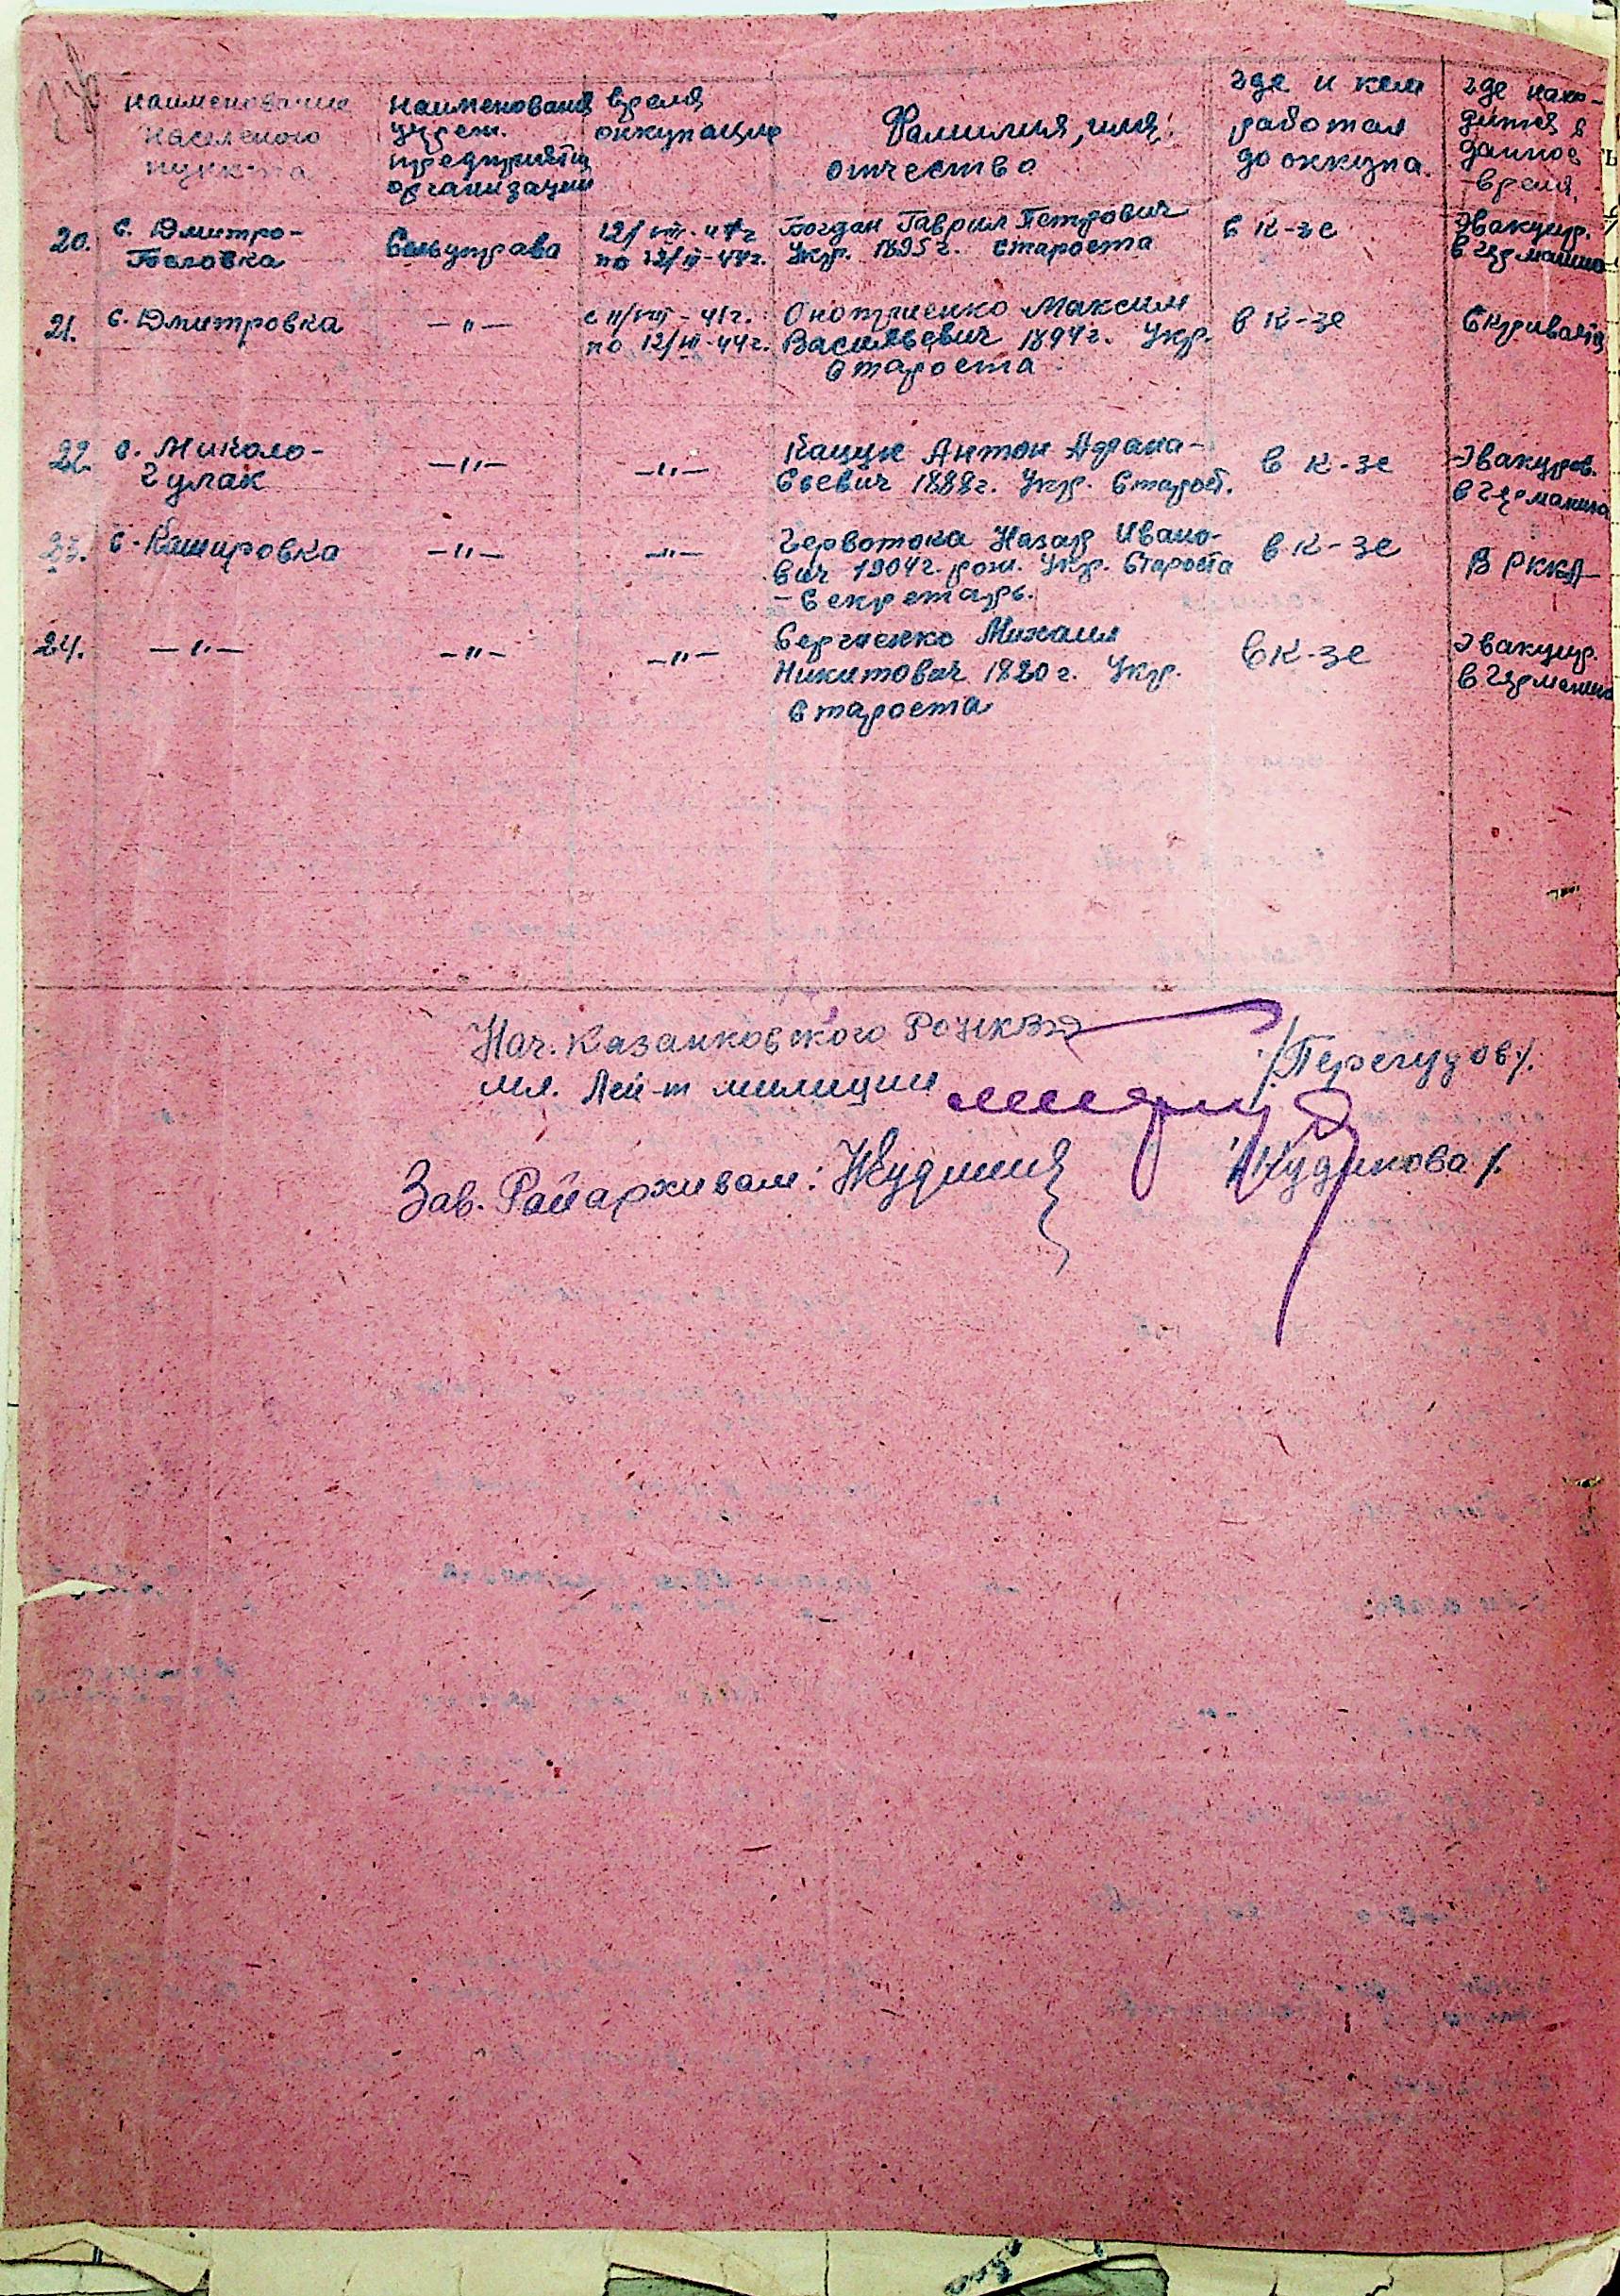 наименование населеного пункта
наименование учреж. предприятия организации
время оккупации
Фамилия, имя, отчество
где и кем работал до оккупа.
где нахо-дится в данное время,
20. с. Дмитро- Сельуправа 12/VIII-41г Богдан Гаврил Петрович в к-зе Эвакуир.
Беловка по 12/III-44г. Укр. 1895г. староста в Германию
21. с. Дмитровка —"— с 11/VIII-41г. Онотриенко Максим в к-зе Скриваятя
по 12/III-44г. Васильевич 1894г. Укр.
староста
22. с. Миколо- —"— —"— Кацук Антон Афана- в к-зе Эвакуиров.
Гулак сьевич 1888г. Укр. Старост. в Германию
23. с. Кашировка —"— —"— Червотока Назар Ивано- в к-зе В РККА
вич 1904г. рож. Укр. Староста
-секретарь.
24. —"— —"— —"— Сергиенко Михаил в к-зе Эвакуир.
Никитович 1880г. Укр. в Германию
староста
Нач. Казанковского РОНКВД
мл. Лей-т милиции /Перегудов/.
Зав. Райархивам: /Кудинова/.